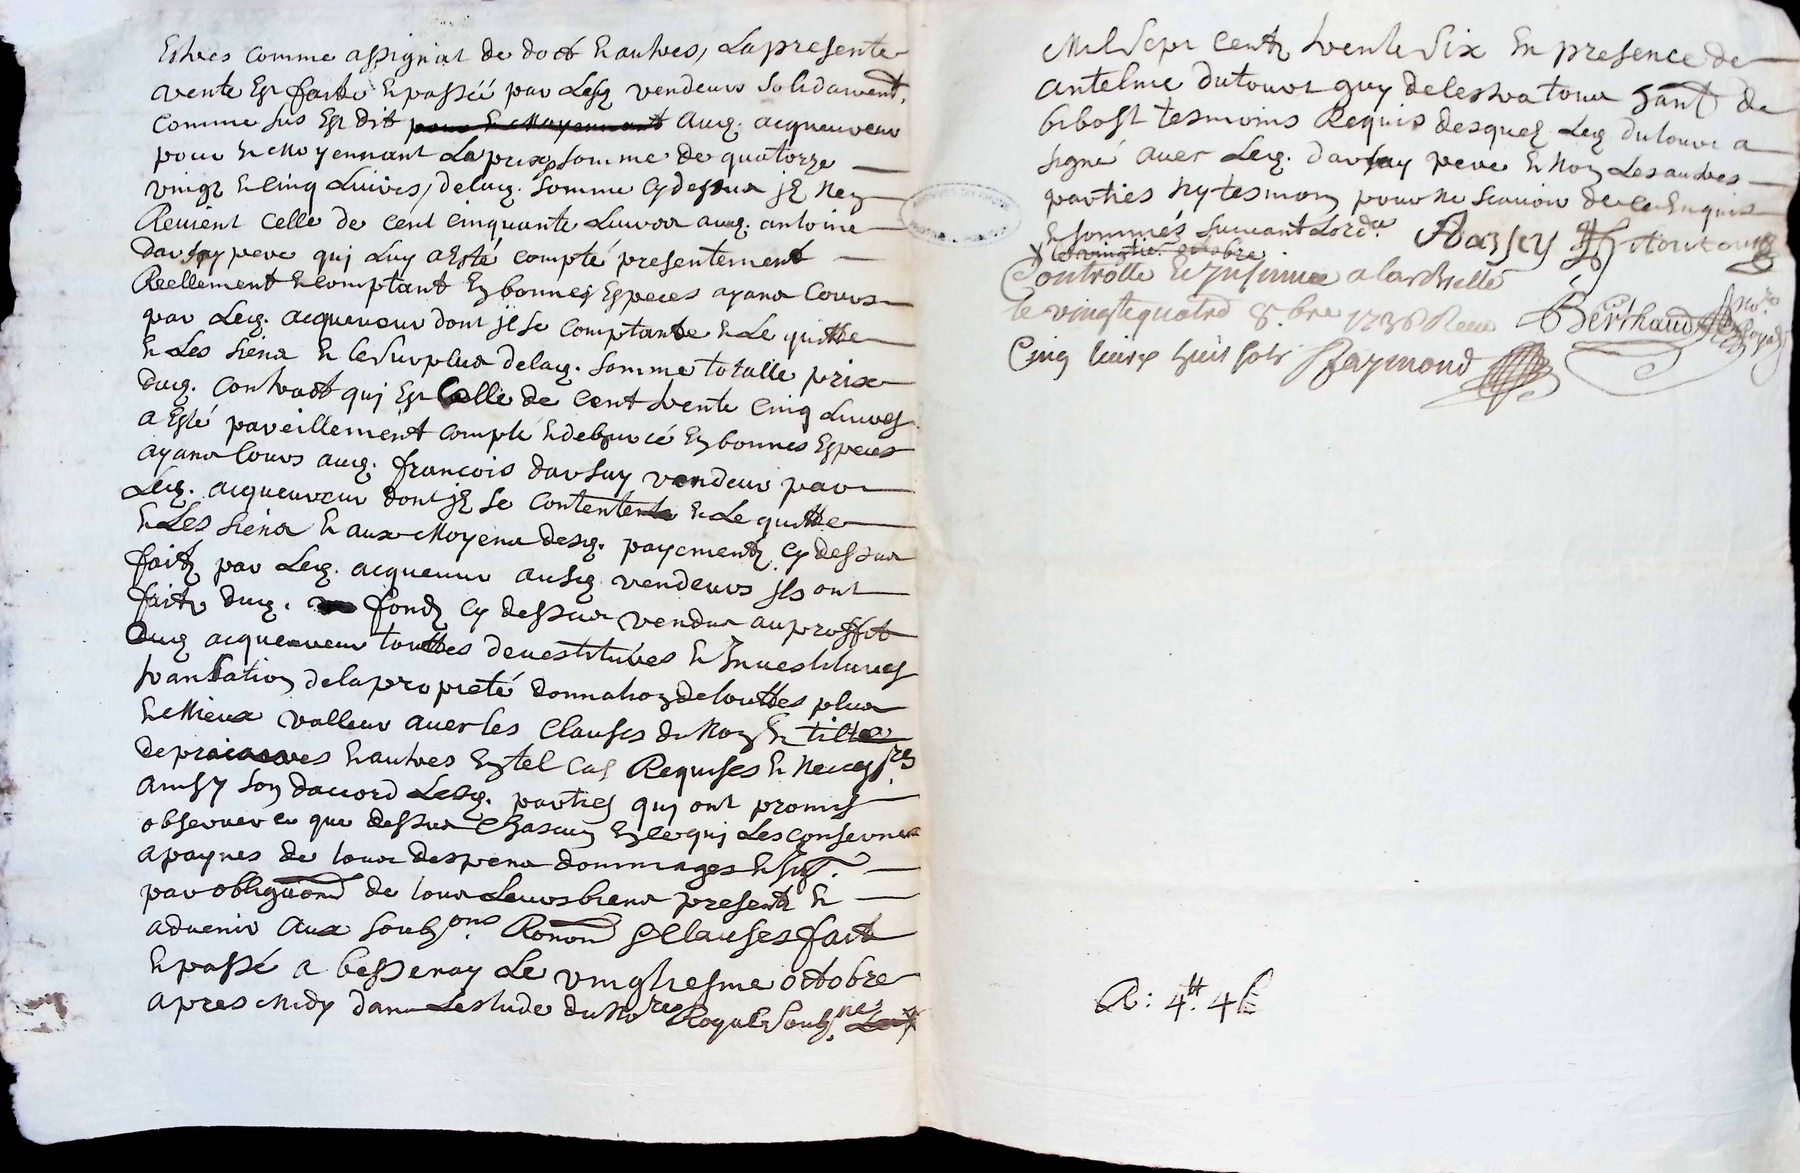 Estres comme assignat de dott & autres, La presente
vente Est faitte & passée par Lesq vendeurs solidairemt,
comme sus Est dit pour & Moyennant auq. acquereur
pour & Moyennant La prix & somme de quatorze
vingt & cinq Livres, delaq. somme cy dessus jl ney
Revient celle de cent cinquante Livres auq. antoine
darsay pere quj Luy a Esté compté presentement
Reellement & comptant En bonnes Especes ayans Cours
par Leq. acquereur dont jl se comptante & Le quitte
& Les siens & le surplus delaq. somme totalle prix
duq. contract quj Est Celle de cent trente cinq Livres
a Esté pareillement compté & deburcé En bonnes Especes
ayans Cours auq. françois darsay vendeur par
Leq. acquereur dont jl se contente & Le quitte
& Les siens & aux Moyens desq. payements cy dessus
faitz par Leq. acquereur ausq. vendeurs jls ont
faitz duq. fondz cy dessus vendus au proffit
duq acquereur touttes devestitures & Investitures
translation de la proprieté donnation de touttes plus
& Mieux valleur avec les Clauses de Non & tiltre
de precaires & autres En tel cas Requises & Necessres
ainsy son d'accord Lesq. parties quj ont promis
observer ce que dessus Chascun En ce quj Les conserne
a paynes de tous despens dommages & Intt.
par obligaons de tous Leurs biens presentz &
advenir Aux soubzons Renons & Clauses fait
& passé a bessenay Le vingtiesme octobre
apres Midy dans L'estude du Nore Royal soubznez
Mil Sept Centz trente Six En presence de
antelme dutour guy delestra tous hantz de
bibost tesmoins Requis desquelz Leq dutour a
signé avec Leq. darsay pere & Non Les autres
parties ny tesmoin pour ne scavoir de ce Enquis
& sommés suivant Lorde.
Le vingtie. octobre
Darsay Dutour
Controllé & Insinué a larbrelle
le vingtquatre 8.bre 1736 Receu
Berthaud Nore Royal
Cinq livres huit sols Raymond
R: 4tt. 4s